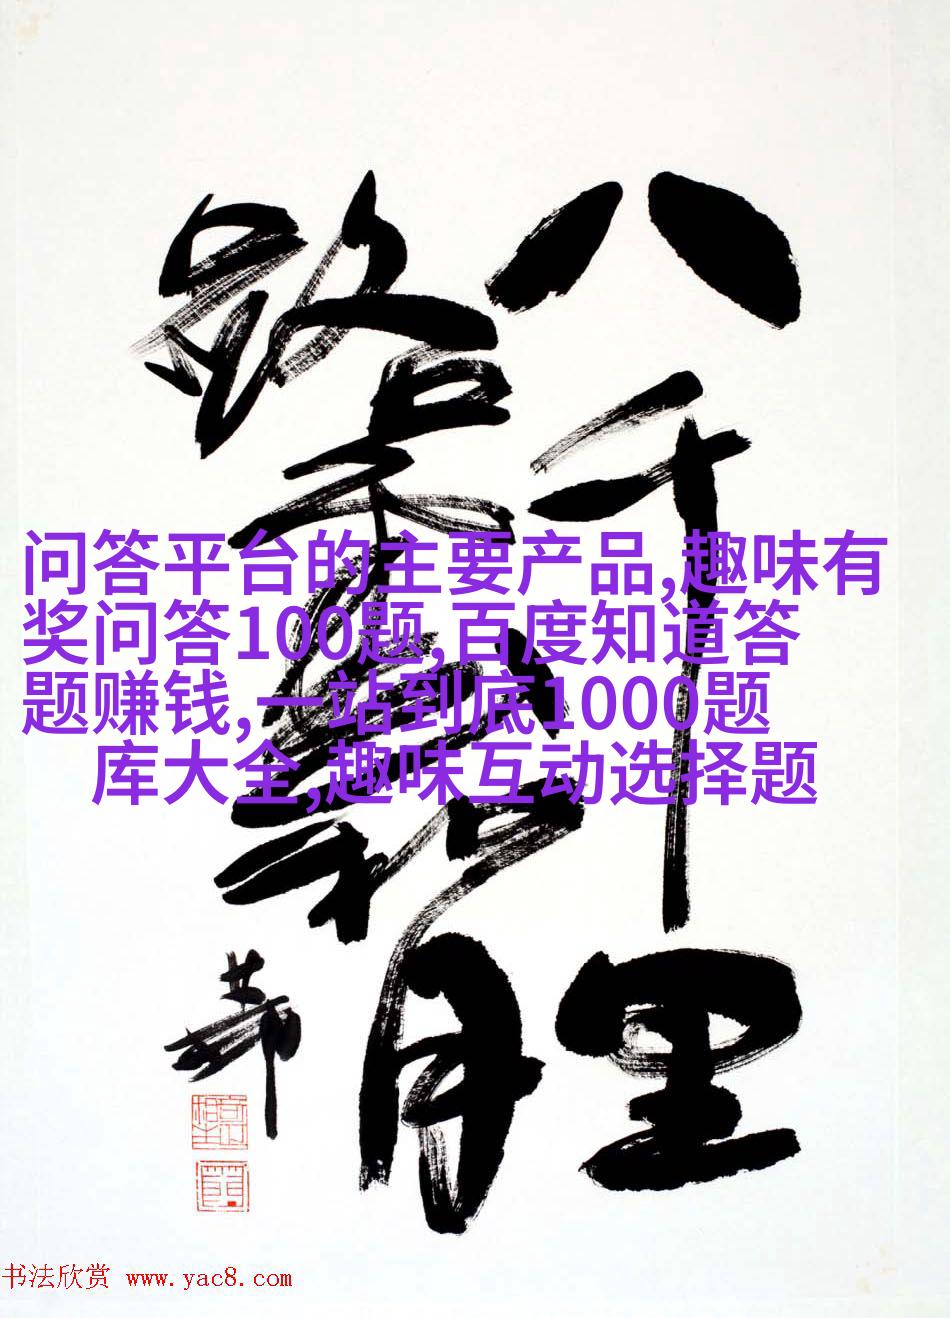 八千里
路云和月
问答平台的主要产品,趣味有
奖问答100题,百度知道答
题赚钱,一站到底1000题
库大全,趣味互动选择题
书法欣赏 www.yac8.com